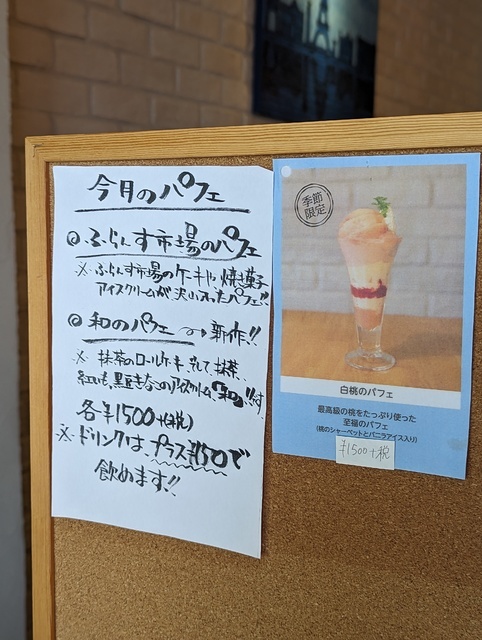 今月のパフェ
◎ふらんす市場のパフェ
※ふらんす市場のケーキや焼き菓子
アイスクリームが沢山入ったパフェ!!
◎和のパフェ → 新作!!
※抹茶のロールケーキ、そして抹茶、
紅いも、黒豆きなこのアイスクリーム、「和」!!です
各¥1500(+税)
※ドリンクは、プラス¥150で
飲めます!!
季節
限定
白桃のパフェ
最高級の桃をたっぷり使った
至福のパフェ
(桃のシャーベットとバニラアイス入り)
¥1500+税